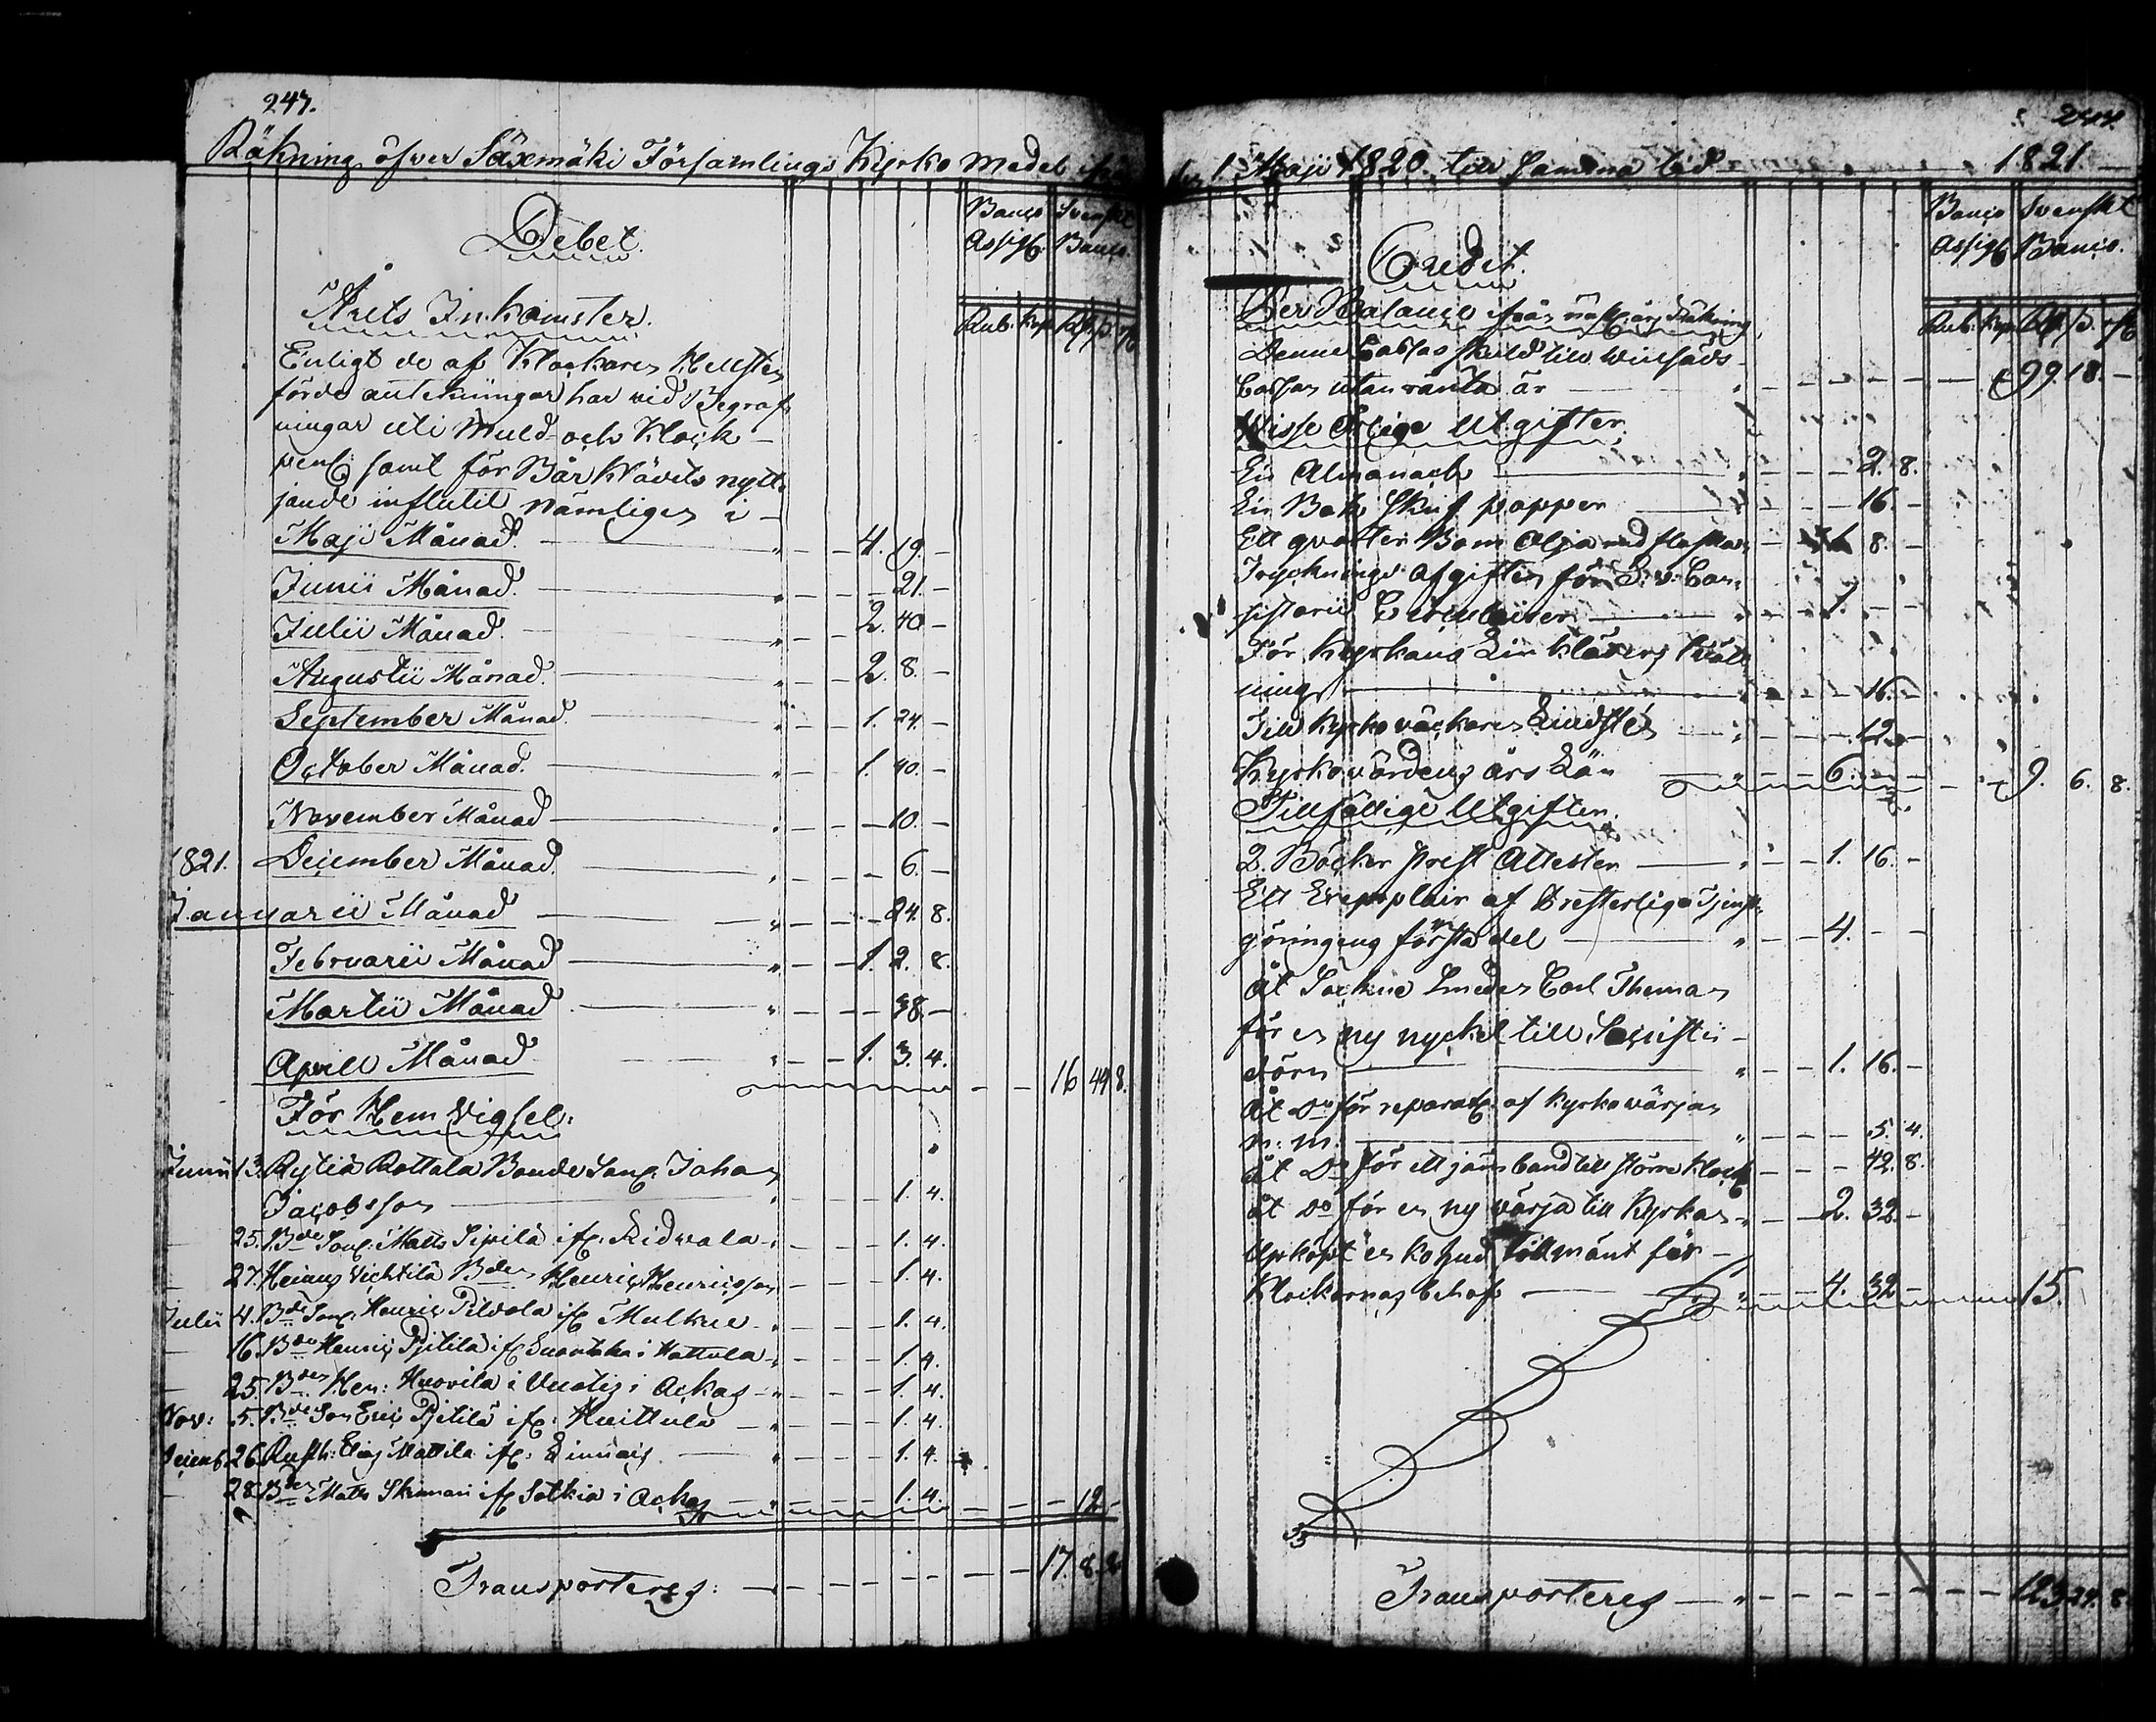 247.
Räkning öfver Säxmäki Församlings Kyrko Medel ifrån
Debet.
Banco Svenskt
Assig: Banco.
Rub. Kop. Rd ß rst
Årets Inkomster.
Enligt de af Klockaren Hellsten
förde anteckningar har vid Begraf-
ningar uti Muld- och Klock-
peng: samt för Bårklädets nytt-
jande influtit nämligen i
Maji Månad. 4. 19. -
Junii Månad. 21. -
Julii Månad. 2. 40 -
Augustii Månad. 2. 8. -
September Månad. 1. 24. -
October Månad. 1. 40. -
November Månad 10. -
1821. December Månad. 6. -
Januarii Månad 24. 8.
Februarii Månad 1. 2. 8.
Martii Månad 38. -
Aprill Månad 1. 3. 4.
16 49 8.
För Hem Vigsel:
Junii 13. Rytiä Rottola Bonde Son Johan
Jacobsson 1. 4.
25. Bde Son: Matts Sipilä if: Ridvala 1. 4.
27. Heinus Vichtilä Bden Henric Henricsson 1. 4.
Julii 4. Bde Son: Henric Pilvola if: Mulkue 1. 4.
16. Bden Henric Pjitilä if: i Hattula 1. 4.
25. Bden Hen: Huovila i i Ackas 1. 4.
Nov: 5. Bde Son Eric Pjitilä if: Huittula 1. 4.
Decemb. 26. Rusth: Elias Mattila if: 1. 4.
28. Bden Matts if: Sotkia i Ackas 1. 4.
12 -
Transporteres: 17. 8. 8.
244.
den 1 Maji 1820. till samma tid 1821.
Credit.
Banco Svenskt
Assig: Banco.
Rub. Kop. Rd ß rst
Per Balance från näst: års Räkning
Denne Cassas skuld till
Cassan utan ränta är 99. 18. -
Visse Årlige Utgifter.
En Almanach 2. 8.
En Bok Skrif papper 16. -
Ett qvarter Bom Olja med flaska 8. -
Trycknings afgiften för S: v: Con-
sistorii Circulairer 1. - -
För Kyrkans Linkläders tvätt
ning 16. -
Till Kyrkoväckaren Lindsted 12. -
Kyrkovärdens års Lön 6. - - 9. 6. 8.
Tillfällige Utgifter.
2. Böcker Prest Attester 1. 16. -
Ett Exemplair af Presterliga Tjenst-
göringens första del 4. - -
åt Sockne Smeden Carl Thoman
för en ny nyckel till Sacristii
dörn 1. 16. -
åt Do för reparat: af Kyrkovärjan
m. m. 5. 4.
åt Do för ett jern band till större Klock 42. 8.
åt Do för en ny värja till Kyrkan 2. 32. -
Upköpt en kohud för
Klockornas behof 4. 32 - 15.
Transporteres 123. 24. 8